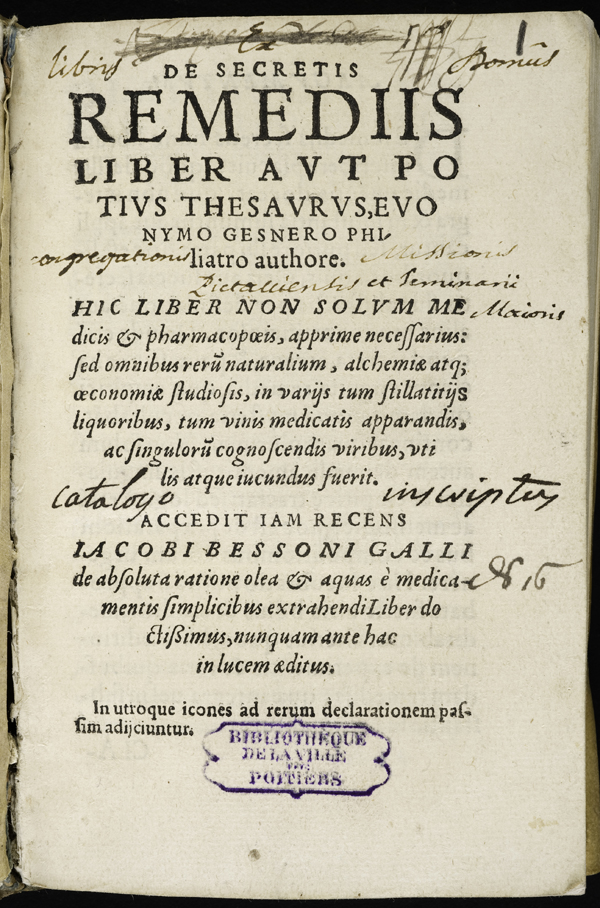 Ex
libris Domûs
1
DE SECRETIS
REMEDIIS
LIBER AVT PO
TIVS THESAVRVS, EVO
NYMO GESNERO PHI-
congregationis liatro authore. Missionis
Pictaviensis et Seminarii
HIC LIBER NON SOLVM ME Maioris
dicis & pharmacopœis, apprime neceſſarius:
ſed omnibus rerū naturalium, alchemiæ atq;
œconomiæ ſtudioſis, in varijs tum ſtillatitijs
liquoribus, tum vinis medicatis apparandis,
ac ſingulorū cognoſcendis viribus, vti
lis atque iucundus fuerit.
catalogo inscriptus
ACCEDIT IAM RECENS
IACOBI BESSONI GALLI
de abſoluta ratione olea & aquas è medica-
mentis ſimplicibus extrahendi Liber do
ctißimus, nunquam ante hac
in lucem æditus.
In utroque icones ad rerum declarationem paſ-
ſim adijciuntur.
BIBLIOTHÈQUE
DE LA VILLE
POITIERS